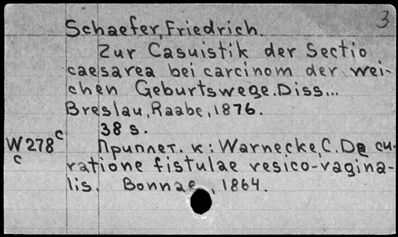 3
Schaefer, Friedrich.
Zur Casuistik der Sectio
caesarea bei carcinom der wei-
chen Geburtswege. Diss...
Breslau, Raabe, 1876.
38 s.
W278 c
c
Приплет. к: Warnecke, C. De cu-
ratione fistulae vesico-vagina-
lis. Bonnae, 1864.